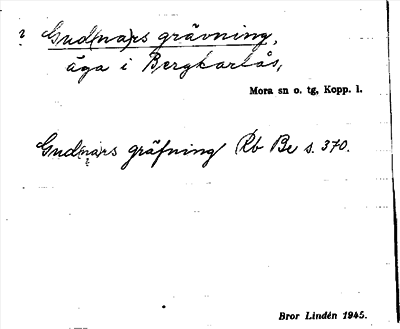 ? Gud(na)rs grävning,
äga i Bergkarlås,
Mora sn o. tg, Kopp. l.
Gud(na)rs gräfning Rb Be s. 370.
?
Bror Lindén 1945.